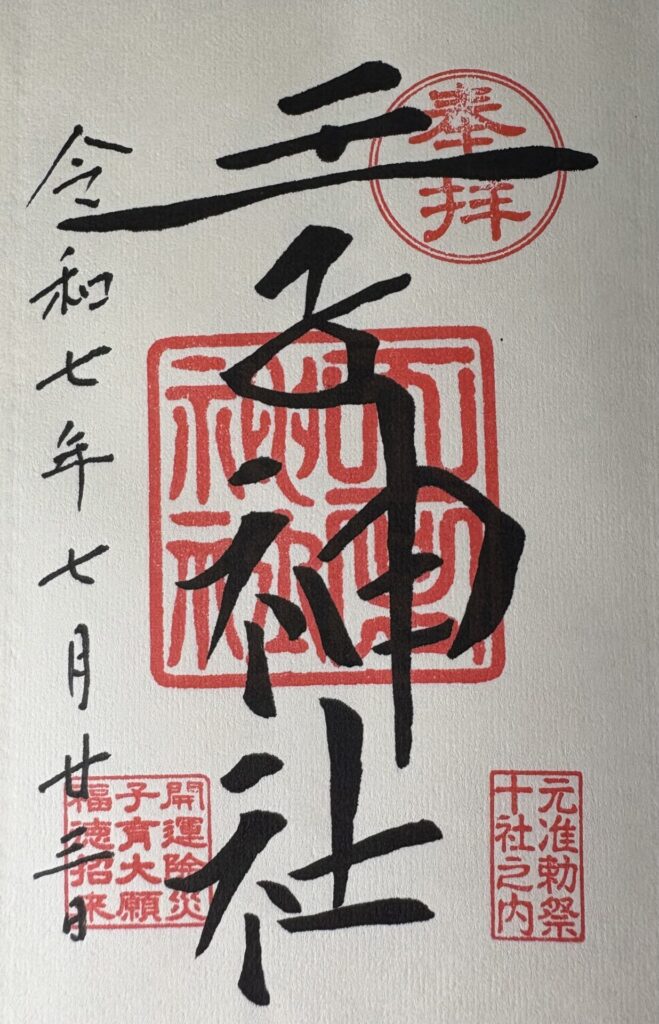 奉拝
王子神社
元准勅祭
十社之内
開運除災
子育大願
福徳招来
令和七年七月廿三日